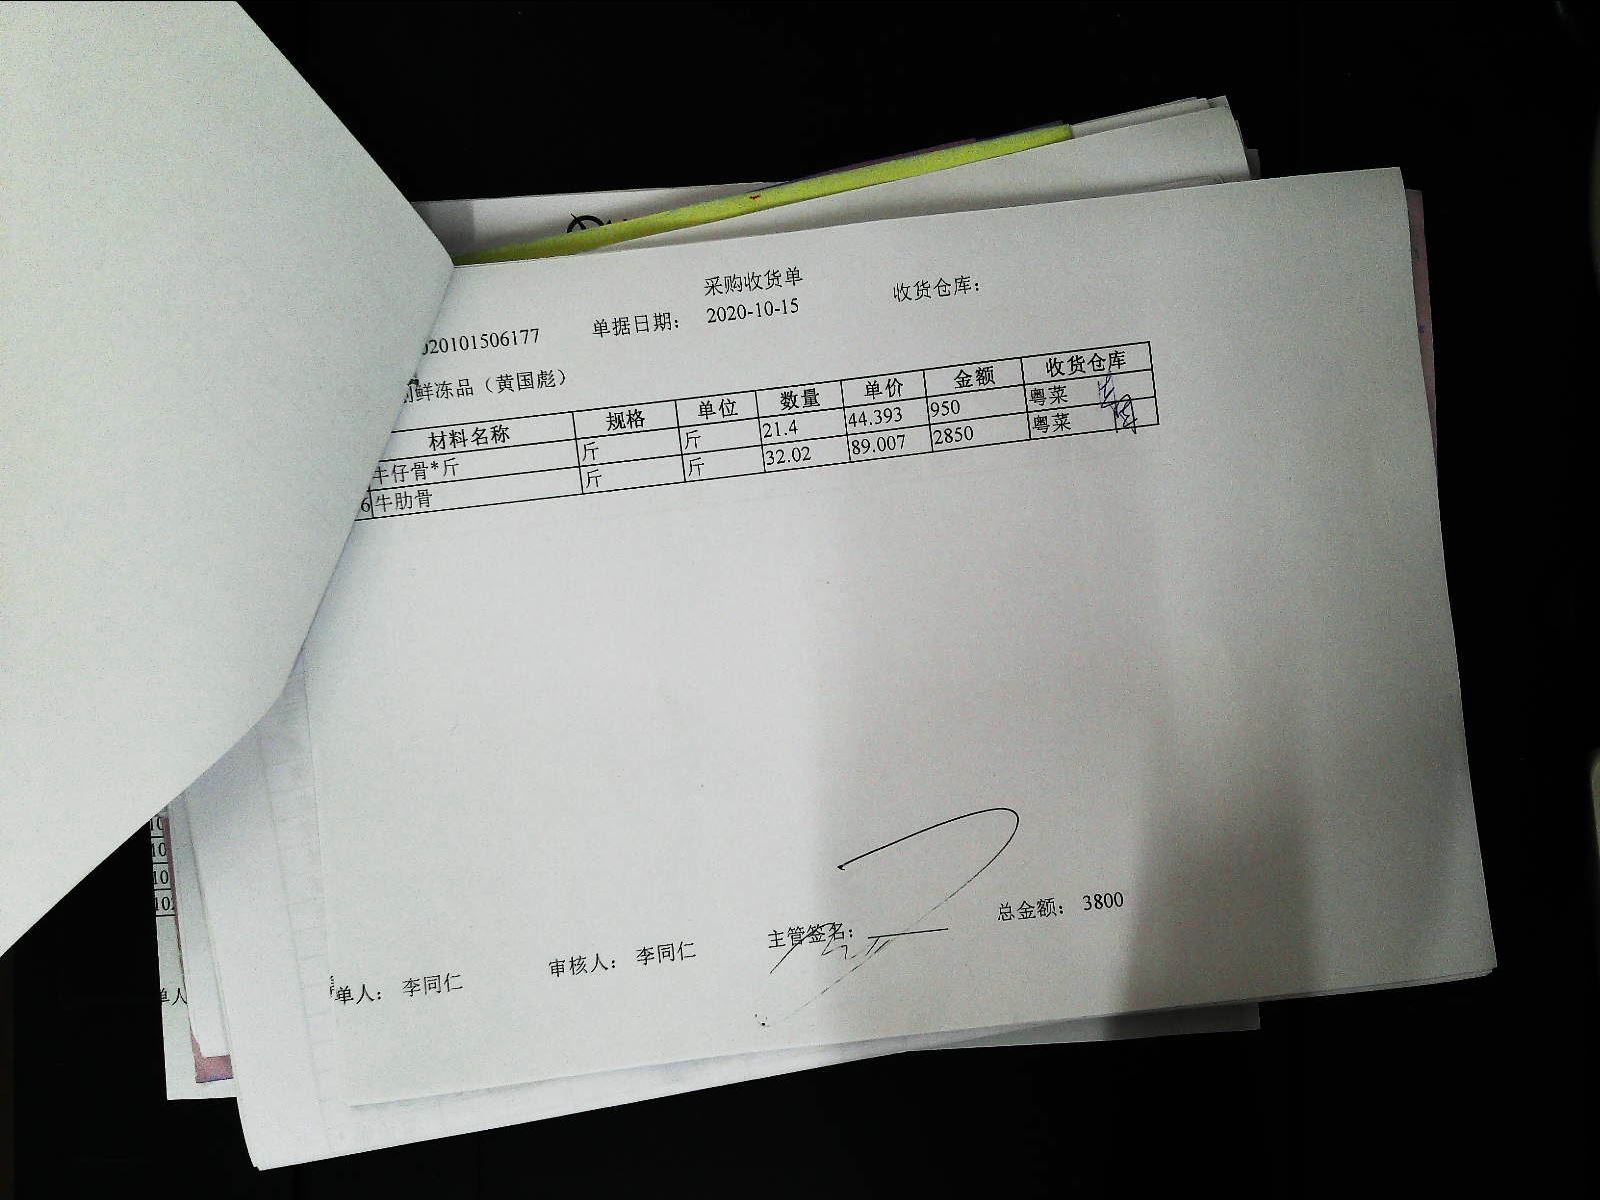 采购收货单
020101506177 单据日期: 2020-10-15 收货仓库:
鲜冻品（黄国彪）
材料名称 规格 单位 数量 单价 金额 收货仓库
牛仔骨*斤 斤 斤 21.4 44.393 950 粤菜
6 牛肋骨 斤 斤 32.02 89.007 2850 粤菜
单人: 李同仁 审核人: 李同仁 主管签名: 总金额: 3800
10
10
10
102
单人